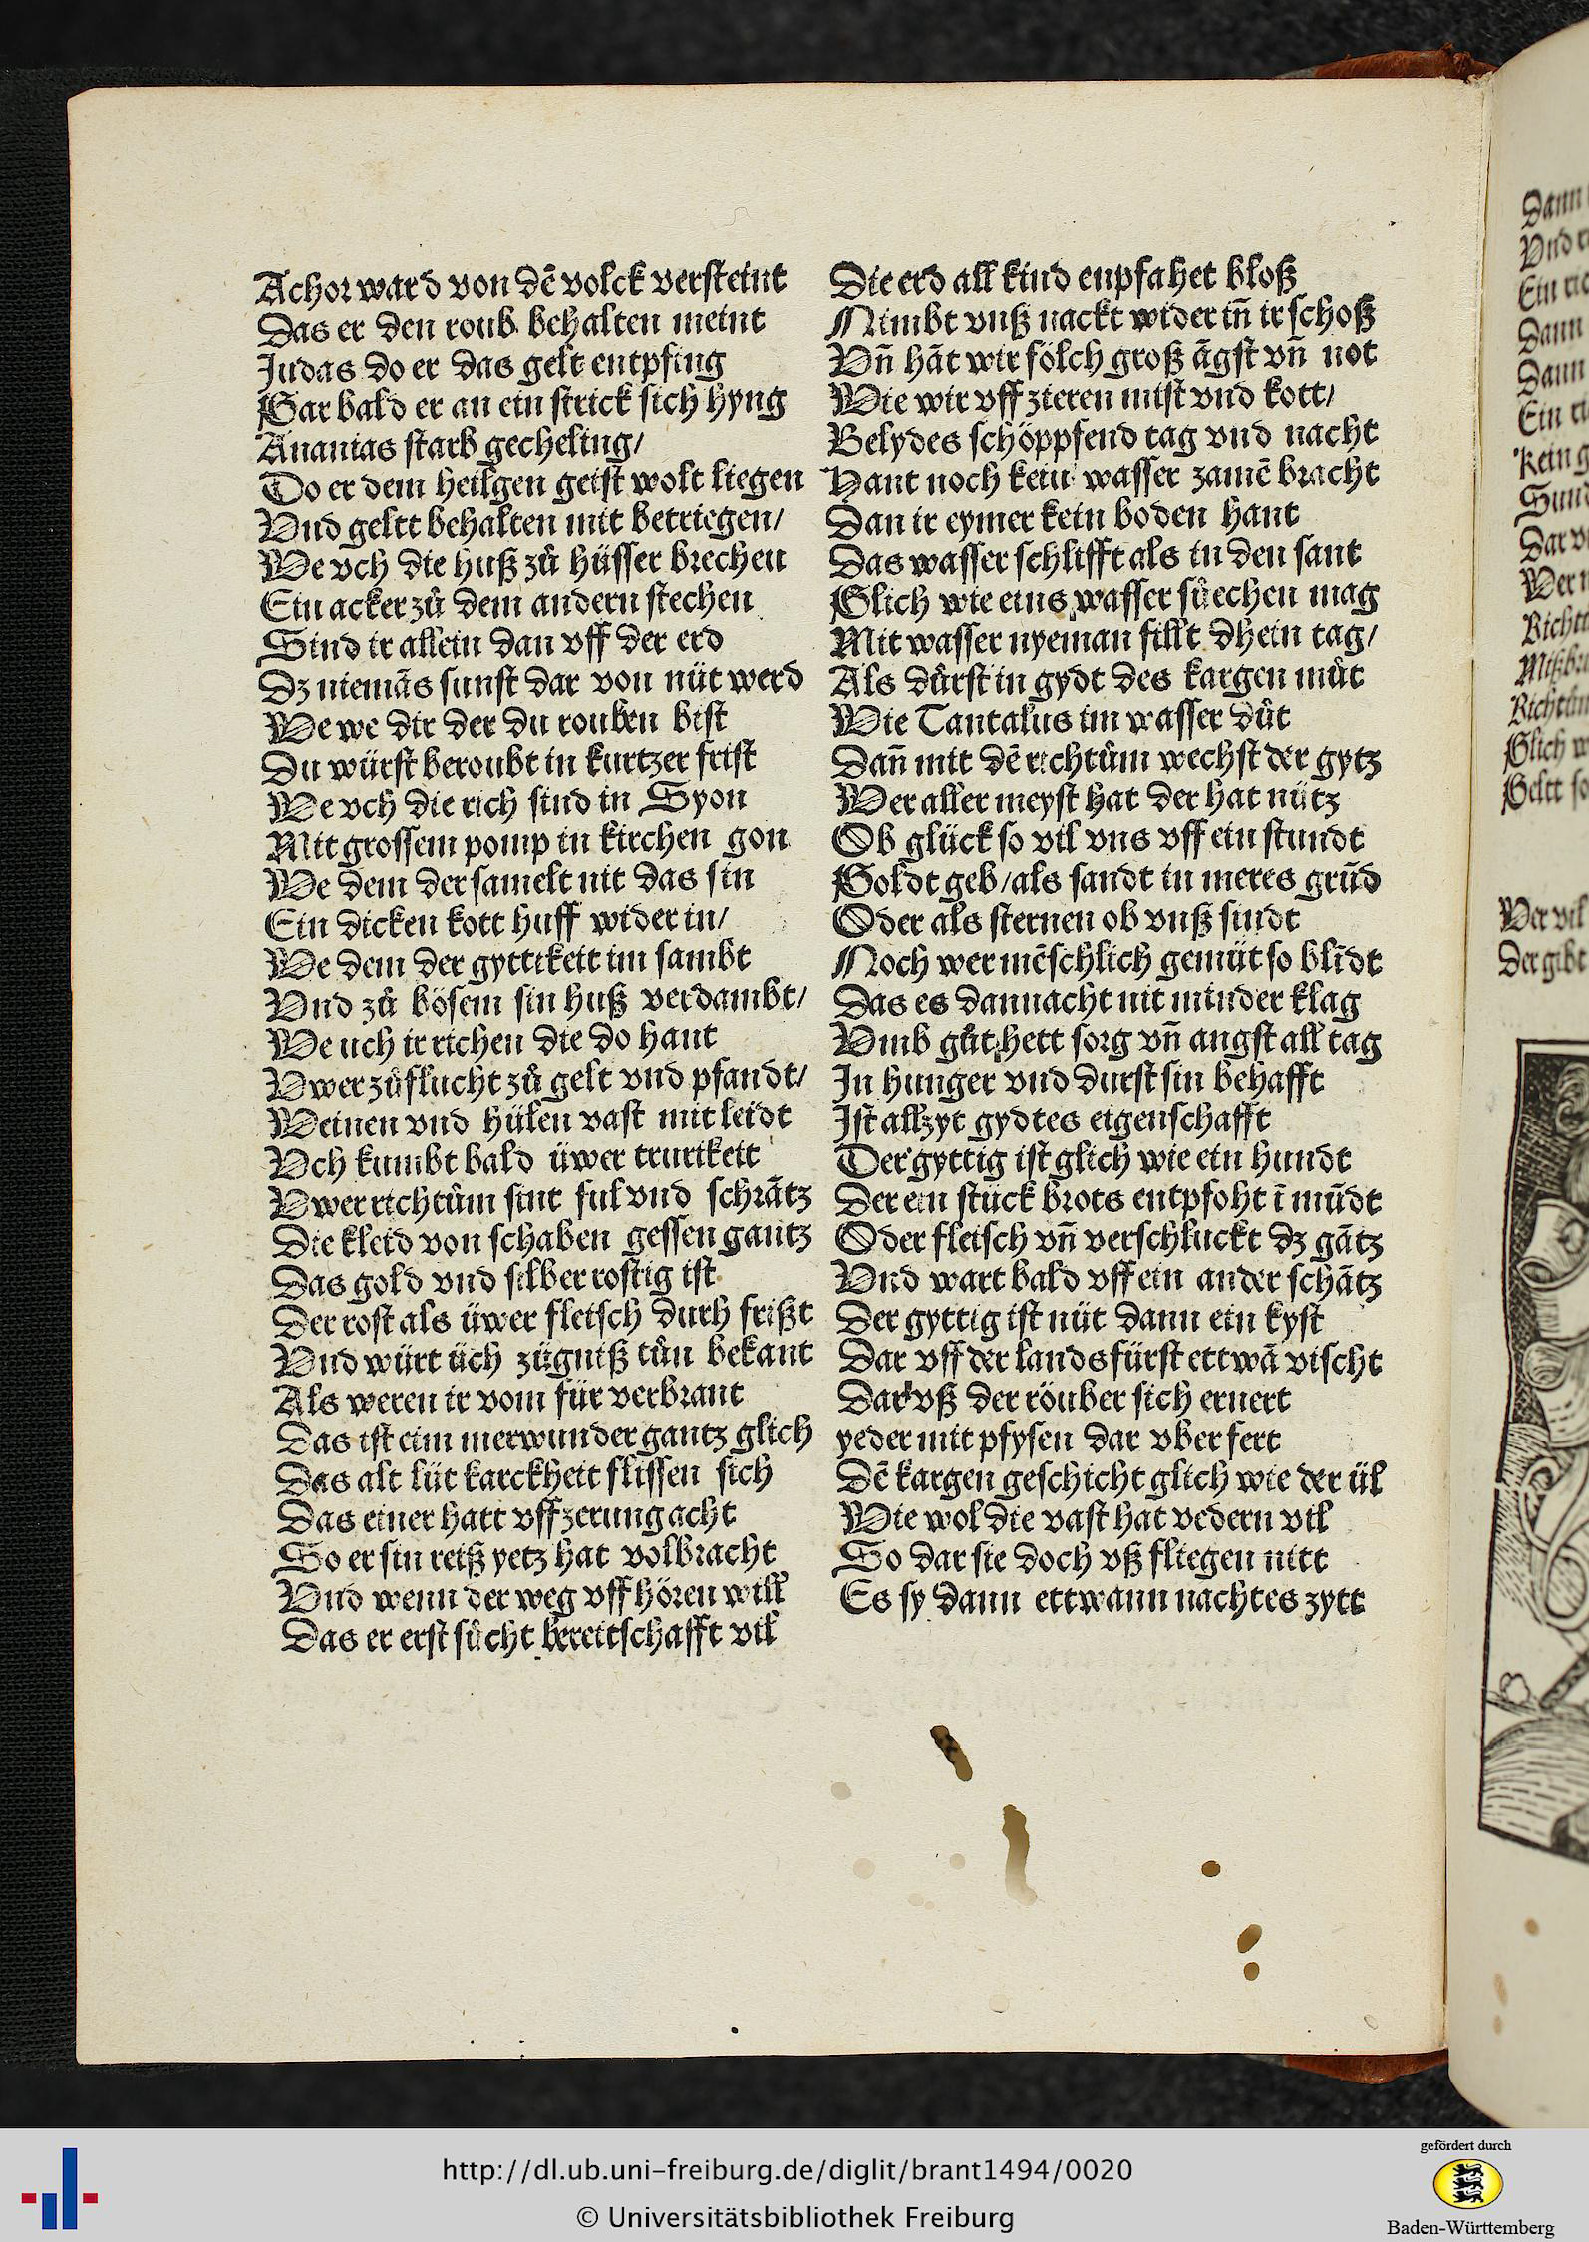 Achor ward von dē volck versteint
Das er den roub behalten meint
Judas do er das gelt entpfing
Gar bald er an ein strick sich hyng
Ananias starb gecheling/
Do er dem heilgen geist wolt liegen
Vnd geltt behalten mit betriegen/
We vch die huß zů hüsser brechen
Ein acker zů dem andern stechen
Sind ir allein dan vff der erd
Dz niemās sunst dar von nüt werd
We we dir der du rouben bist
Du würst beroubt in kurtzer frist
We vch die rich sind in Syon
Mitt grossem pomp in kirchen gon
We dem der samelt nit das sin
Ein dicken kott huff wider in/
We dem der gyttikeit im sambt
Vnd zů bösem sin huß verdambt/
We uch ir richen die do hant
Vwer zůflucht zů gelt vnd pfandt/
Weinen vnd hülen vast mit leidt
Vch kumbt bald üwer trurikeit
Vwer richtům sint ful vnd schrātz
Die kleid von schaben gessen gantz
Das gold vnd silber rostig ist
Der rost als üwer fleisch durh frißt
Vnd würt üch zügniß tůn bekant
Als weren ir vom für verbrant
Das ist eim merwunder gantz glich
Das alt lüt karckheit flissen sich
Das einer hatt vffzerung acht
So er sin reiß yetz hat volbracht
Vnd wenn der weg vff hören will
Das er erst sůcht bereittschafft vil
Die erd all kind enpfahet bloß
Nimbt vnß nackt wider iñ ir schoß
Vñ hāt wir sölch groß āgst vñ not
Wie wir vff zieren mist vnd kott/
Belydes schöppfend tag vnd nacht
Hant noch kein wasser zamē bracht
Dan ir eymer kein boden hant
Das wasser schlifft als in den sant
Glich wie eins wasser sůechen mag
Mit wasser nyeman fillt dhein tag/
Als dürst in gydt des kargen můt
Wie Tantalus im wasser důt
Dañ mit dē richtům wechst der gytz
Wer aller meyst hat der hat nütz
Ob glück so vil vns vff ein stundt
Goldt geb/als sandt in meres grūd
Oder als sternen ob vnß sindt
Noch wer mēschlich gemüt so blīdt
Das es dannacht nit minder klag
Vmb gůt hett sorg vñ angst all tag
In hunger vnd durst sin behafft
Ist allzyt gydtes eigenschafft
Der gyttig ist glich wie ein hundt
Der ein stück brots entpfoht ī mūdt
Oder fleisch vñ verschluckt dz gātz
Vnd wart bald vff ein ander schātz
Der gyttig ist nüt dann ein kyst
Dar vff der landsfürst ettwā vischt
Dar vß der röuber sich ernert
yeder mit pfysen dar vber fert
Dē kargen geschicht glich wie der ül
Wie wol die vast hat vedern vil
So dar sie doch vß fliegen nitt
Es sy dann ettwann nachtes zytt
Dann
Ein
Dann
Dann
Ein
Kein
Glich
Geltt
Wer vil
Der gibt
http://dl.ub.uni-freiburg.de/diglit/brant1494/0020
© Universitätsbibliothek Freiburg
gefördert durch
Baden-Württemberg